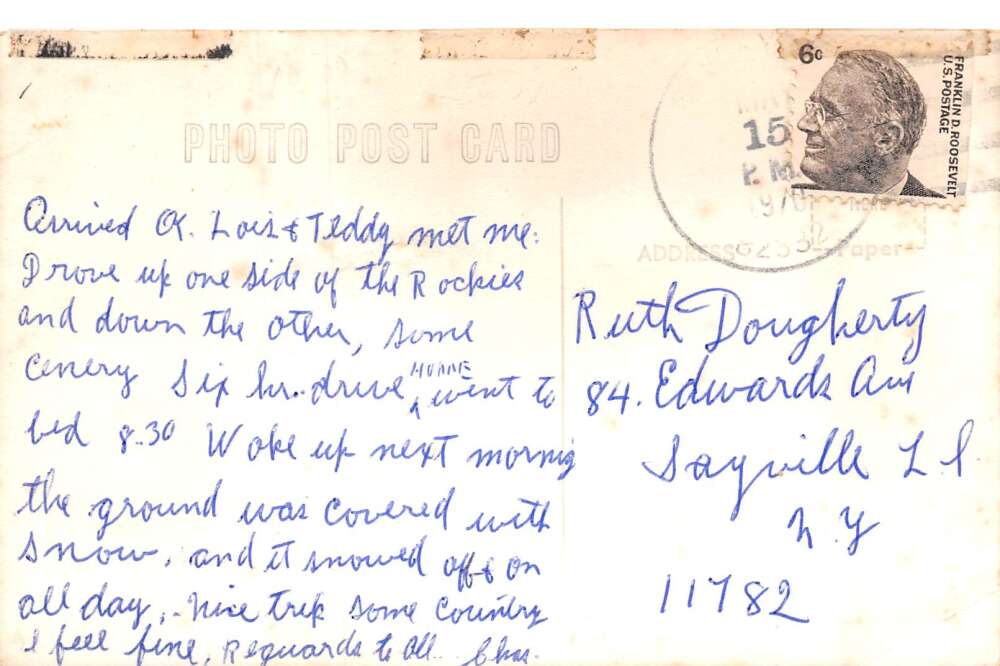 PHOTO POST CARD
6c
FRANKLIN D. ROOSEVELT
U.S. POSTAGE
15
P.M.
1970
ADDRESS
Paper
Arrived OK. Lois & Teddy met me:
Drove up one side of the Rockies
and down the other, some
cenery Six hr. drive HOME went to
bed 8.30 Woke up next mornig
the ground was covered with
snow, and it snowed off & on
all day, - Nice trip some country
I feel fine, Reguards to All. Chas.
Ruth Dougherty
84. Edwards Ave
Sayville L I
N Y
11782